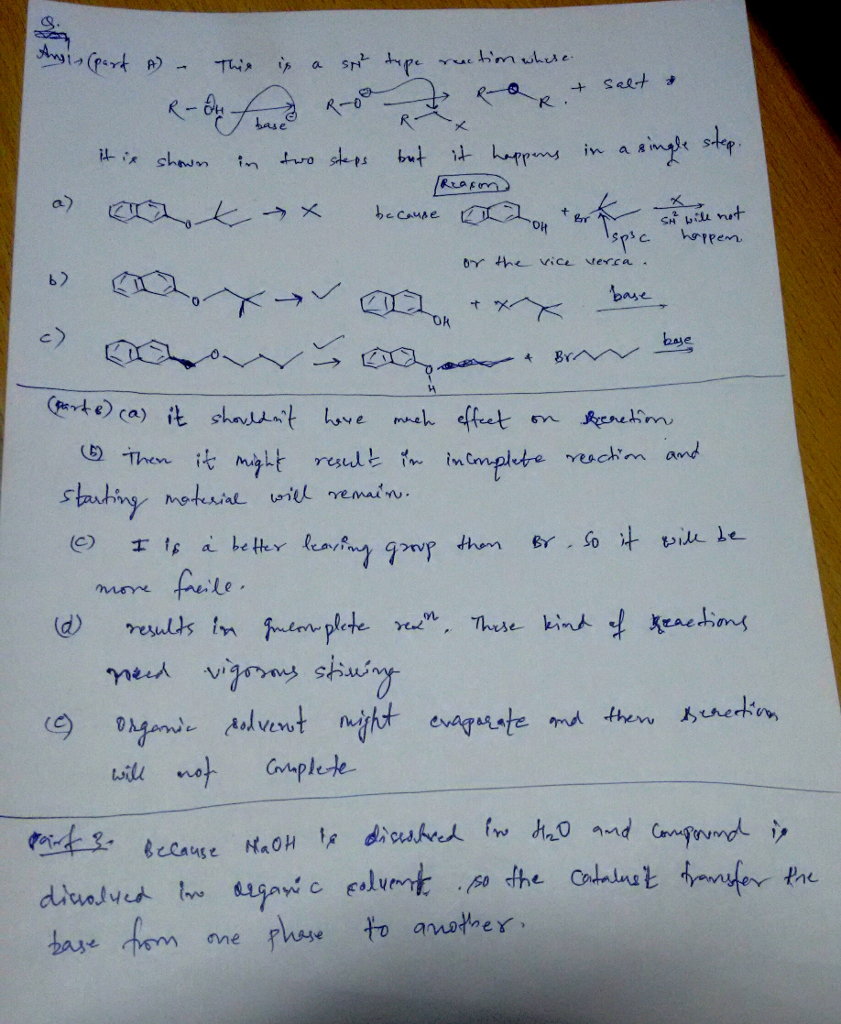 Q.
Ans:- (part A) - This is a SN² type reaction where
R-OH base⊖ R-O⊖ R X R-O-R. + salt
it is shown in two steps but it happens in a single step.
Reason
a) O → X because OH + Br X SN² will not happen
sp³c
or the vice versa.
b) O → ✓ OH + X base
c) O ✓ → O H + Br base
(Part B) (a) it shouldn't have much effect on Reaction
(b) Then it might result in incomplete reaction and
starting material will remain.
(c) I is a better leaving group than Br. So it will be
more facile.
(d) results in Incomplete rexⁿ. These kind of Reactions
need vigorous stirring
(e) Organic solvent might evaporate and then Reaction
will not Complete
Part 3. Because NaOH is dissolved in H₂O and compound is
dissolved in organic solvent. so the Catalyst transfer the
base from one phase to another.